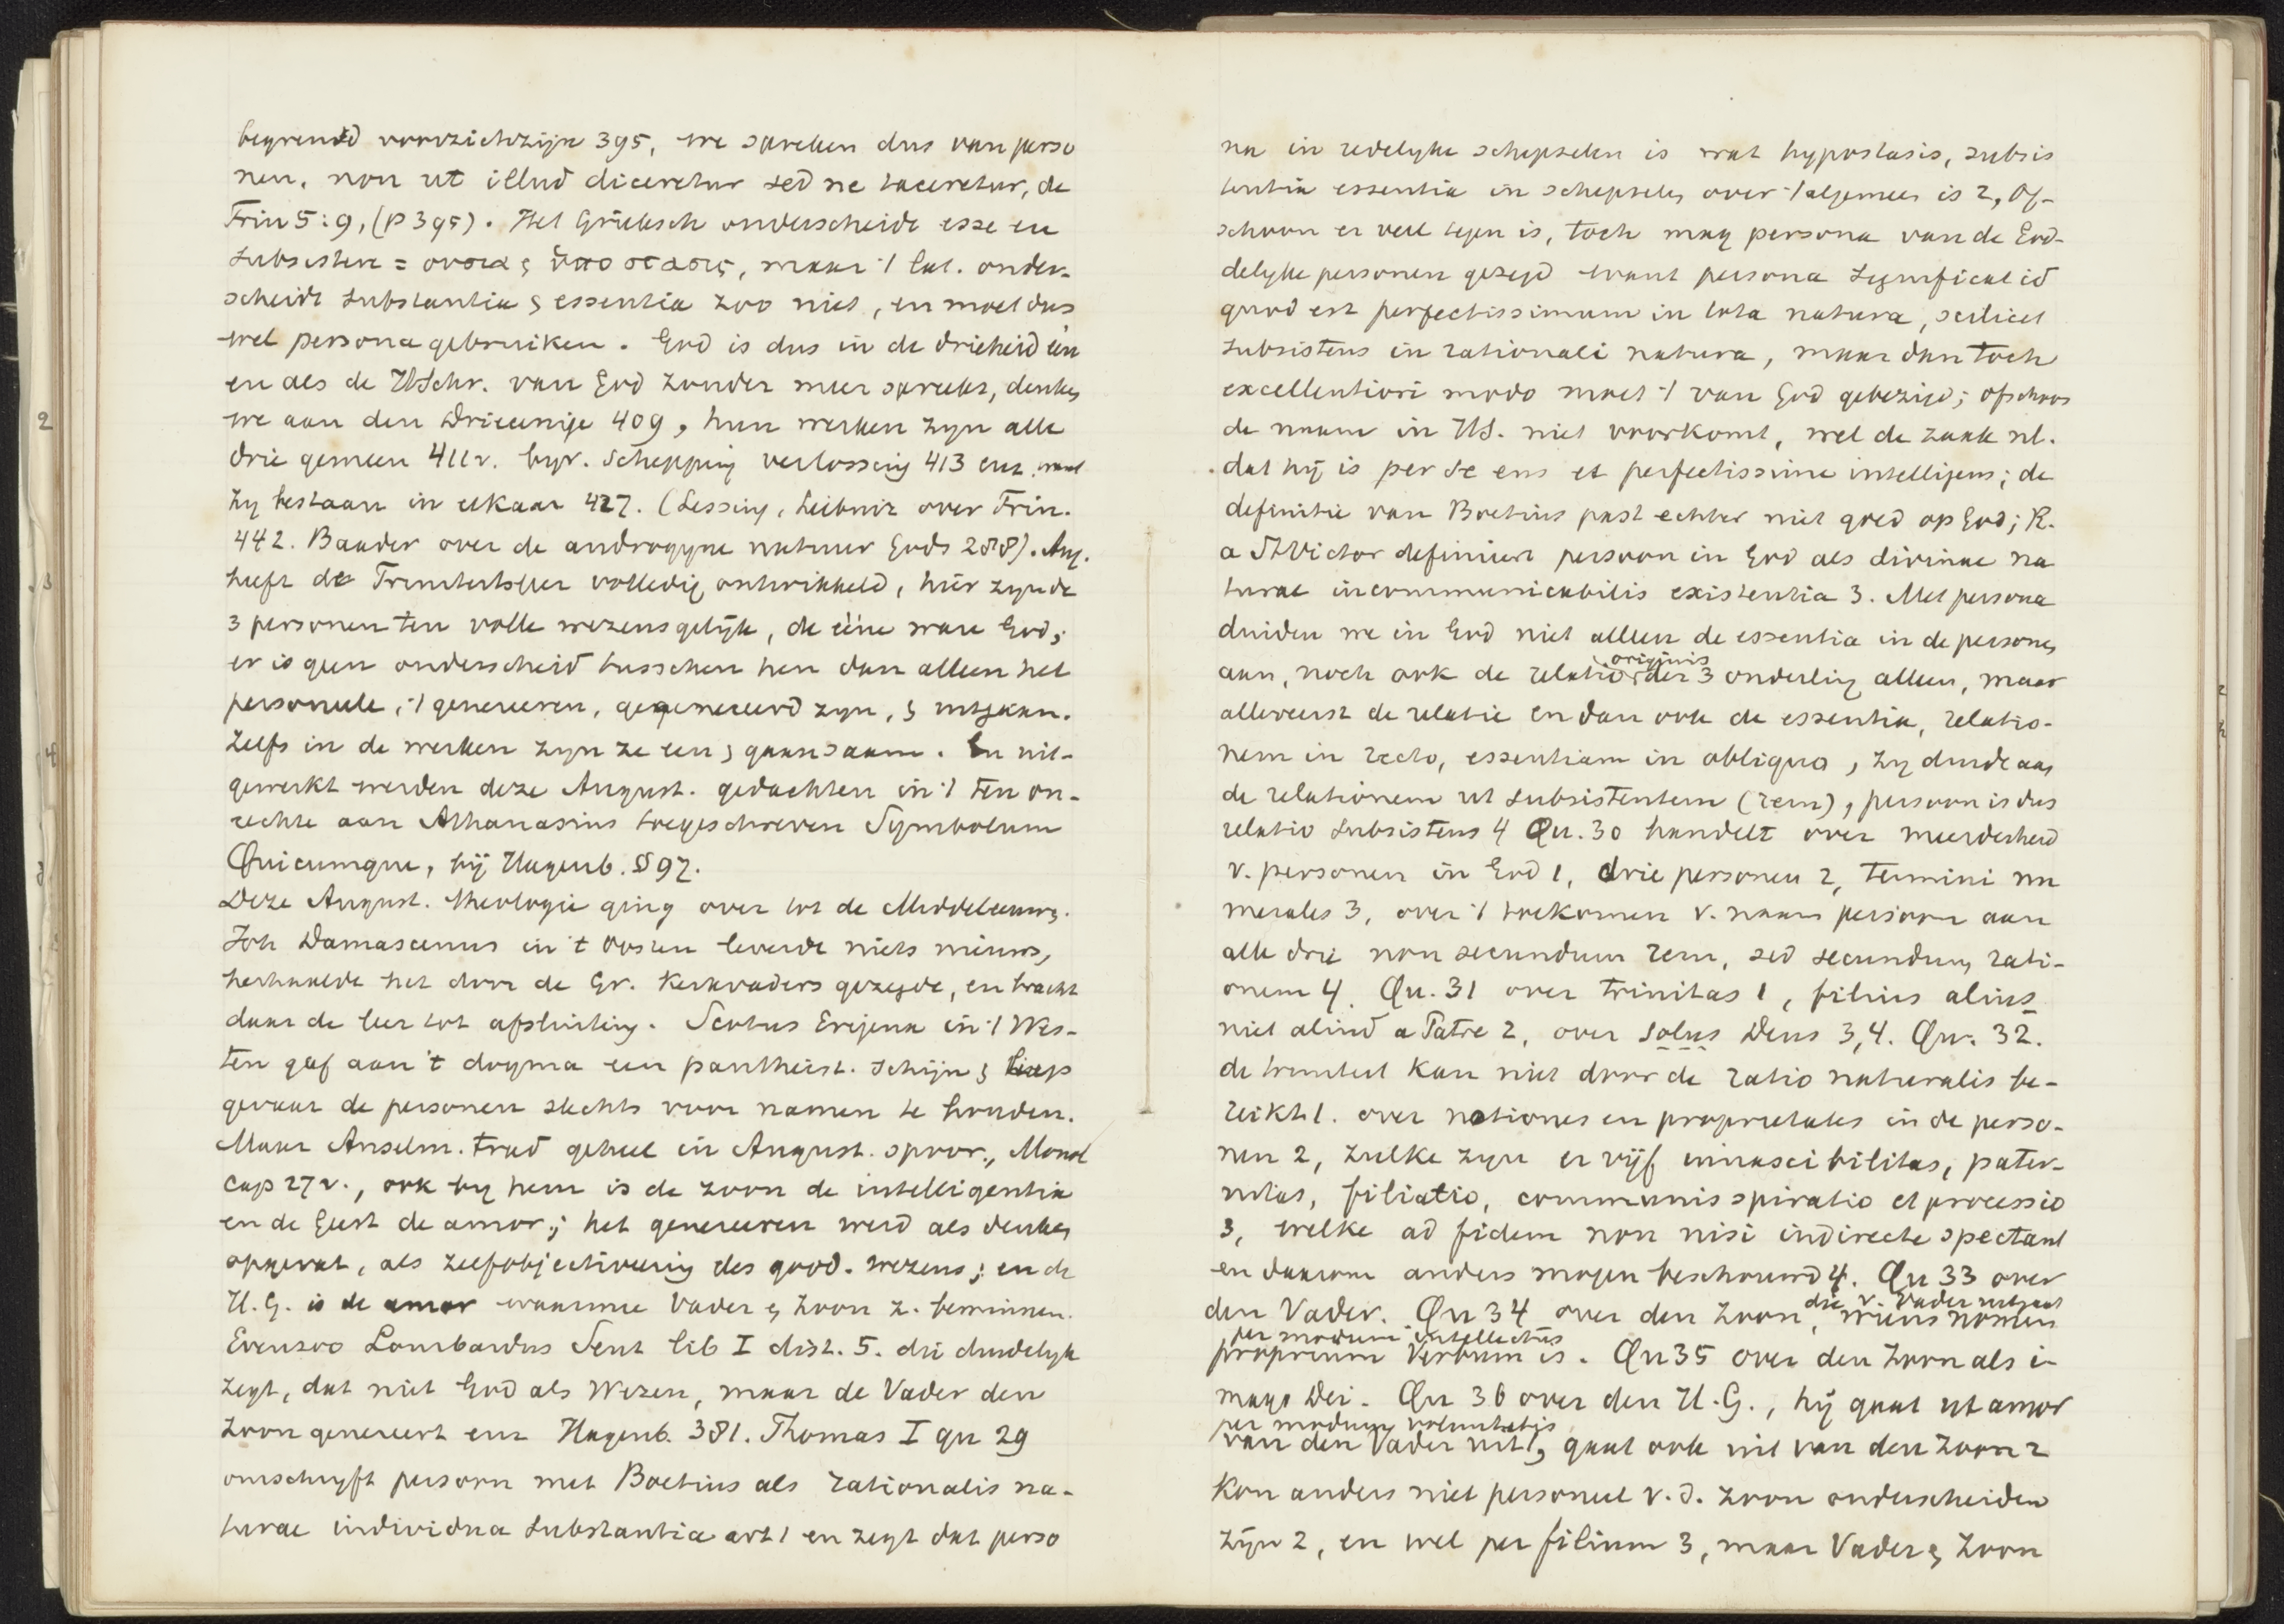 begrensd voorzichzijn 395, we spreken dus van perso
nen, non ut illud diceretur sed ne taceretur, de
Trin 5:9, (p 395). Het Grieksch onderscheidt esse en
subsistere = ουσια & ὑποστασις, maar 't lat. onder-
scheidt substantia & essentia zoo niet, en moet dus
wel persona gebruiken. God is dus in de drieheid één
en als de HSchr. van God zonder meer spreekt, denken
we aan den Drieeenige 409, hun werken zyn alle
drie gemeen 411v. byv. schepping verlossing 413 enz. want
zy bestaan in elkaar 427. (Lessing, Leibniz over Trin.
442. Baader over de androgyne natuur Gods 288). Aug.
heeft de Triniteitsleer volledig ontwikkeld, hier zyn de
3 personen ten volle wezensgelijk, de ééne ware God;
er is geen onderscheid tusschen hen dan alleen het
personeele, 't genereeren, gegenereerd zyn, & uitgaan.
Zelfs in de werken zyn ze een & gaan saam. En uit-
gewerkt werden deze August. gedachten in 't ten on-
rechte aan Athanasius toegeschreven Symbolum
Quicumque, bij Hagenb. § 97.
Deze August. theologie ging over tot de Middeleeuwen.
Joh Damascenus in 't Oosten leverde niets nieuws,
herhaalde het door de Gr. Kerkvaders gezegde, en bracht
daar de leer tot afsluiting. Scotus Erigena in 't Wes-
ten gaf aan 't dogma een pantheist. schijn & liep
gevaar de personen slechts voor namen te houden.
Maar Anselm. trad geheel in August. spoor., Monol
cap 27v., ook by hem is de zoon de intelligentia
en de Geest de amor; het genereeren werd als denken
opgevat, als zelfobjectiveering des godd. wezens; en de
H.G. is de amor waarmee Vader & Zoon z. beminnen.
Evenzoo Lombardus Sent lib I dist. 5. die duidelyk
zegt, dat niet God als Wezen, maar de Vader den
Zoon genereert enz Hagenb. 381. Thomas I qu 29
omschryft persoon met Boetius als rationalis na-
turae individua substantia art 1 en zegt dat perso
na in redelyke schepselen is wat hypostasis, subsis
tentia essentia in schepselen over 't algemeen is 2, Of-
schoon er veel tegen is, toch mag persona van de God-
delyke personen gezegd want persona significat id
quod est perfectissimum in tota natura, scilicet
subsistens in rationali natura, maar dan toch
excellentiori modo moet 't van God gebezigd; ofschoon
de naam in HS. niet voorkomt, wel de zaak nl.
dat hij is per se ens et perfectissime intelligens; de
definitie van Boetius past echter niet goed op God; R.
a StVictor definieert persoon in God als divinae na
turae incommunicabilis existentia 3. Met persona
duiden we in God niet alleen de essentia in de personen
aan, noch ook de relatio originis der 3 onderling alleen, maar
allereerst de relatie en dan ook de essentia, relatio-
nem in recto, essentiam in obliquo, zy duidt aan
de relationem ut subsistentem (rem), persoon is dus
relatio subsistens 4 Qu. 30 handelt over meerderheid
v. personen in God 1, drie personen 2, termini nu
merales 3, over 't toekomen v. naam persoon aan
alle drie non secundum rem, sed secundum rati-
onem 4. Qu. 31 over trinitas 1, filius alius
niet aliud a Patre 2, over solus Deus 3,4. Qu. 32.
de triniteit kan niet door de ratio naturalis be-
reikt 1. over notiones en proprietates in de perso-
nen 2, zulke zyn er vijf innascibilitas, pater-
nitas, filiatio, communis spiratio et processio
3, welke ad fidem non nisi indirecte spectant
en daarom anders mogen beschouwd 4. Qu 33 over
den Vader. Qu 34 over den Zoon, die v. Vader uitgaat
per modum intellectus wiens nomen
proprium Verbum is. Qu 35 over den Zoon als i-
mago Dei. Qu 36 over den H.G., hij gaat ut amor
per modum voluntatis
van den Vader uit 1, gaat ook uit van den Zoon 2
Kon anders niet personeel v. d. Zoon onderscheiden
zijn 2, en wel per filium 3, maar Vader & Zoon
2
3
4